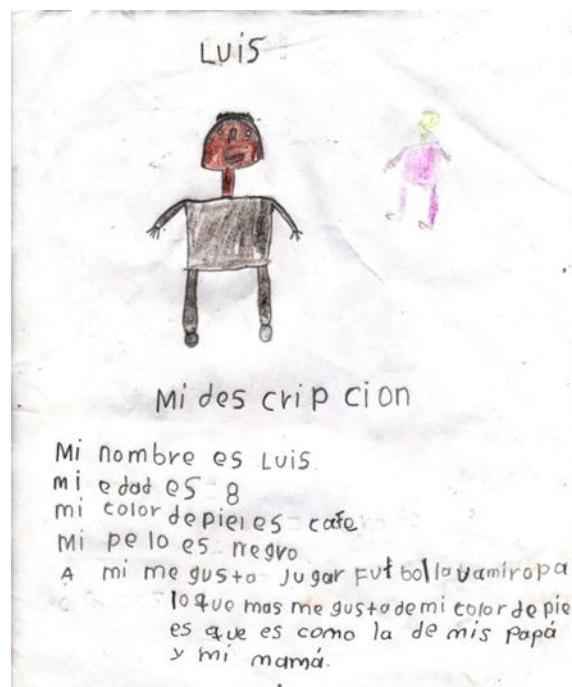 LUIS
Mi des crip cion
Mi nombre es LUIS.
mi edad es 8
mi color de piel es cafe
Mi pe lo es negro
A mi me gusta jugar futbol lavamiropa
lo que mas me gusta de mi color de pie
es que es como la de mis papá
y mi mamá.